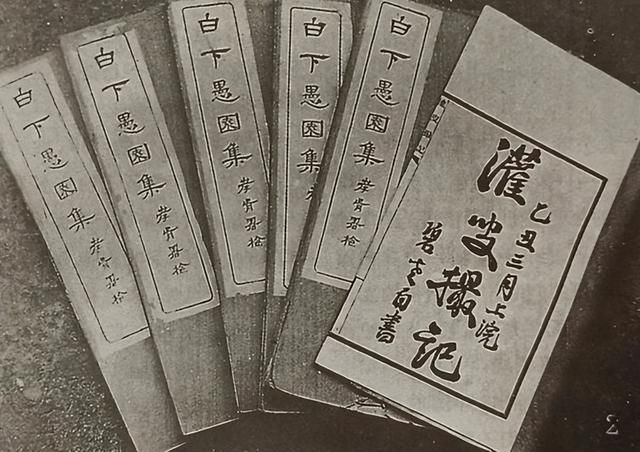 白下愚園集
孝胥署檢
白下愚園集
孝胥署檢
白下愚園集
孝胥署檢
白下愚園集
白下愚園集
孝胥署檢
乙丑三月上浣
灌叟撮記